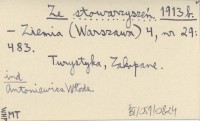 Ze stowarzyszeń 1913 r.
- Ziemia (Warszawa) 4, nr 29:
483.
Turystyka, Zakopane.
ind
Antoniewicz Włodz.
MT